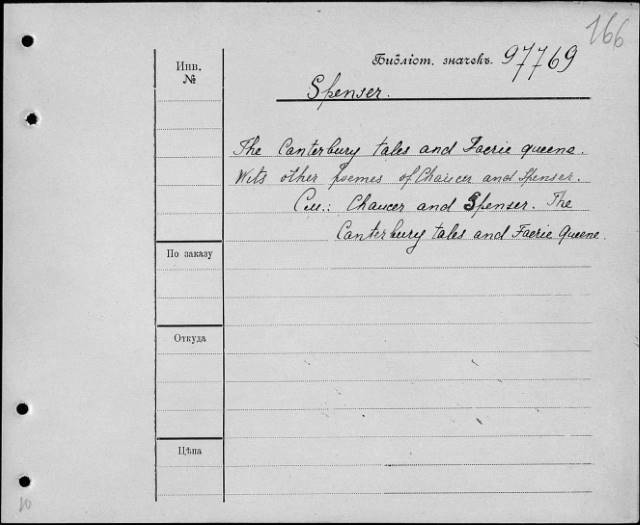 166
Инв.
№
Библіот. значекъ. 97769
Spenser.
The Canterbury tales and Faerie queene.
Wits other poemes of Chaucer and Spenser.
См.: Chaucer and Spenser. The
Canterbury tales and Faerie Queene.
По заказу
Откуда
Цѣна
10